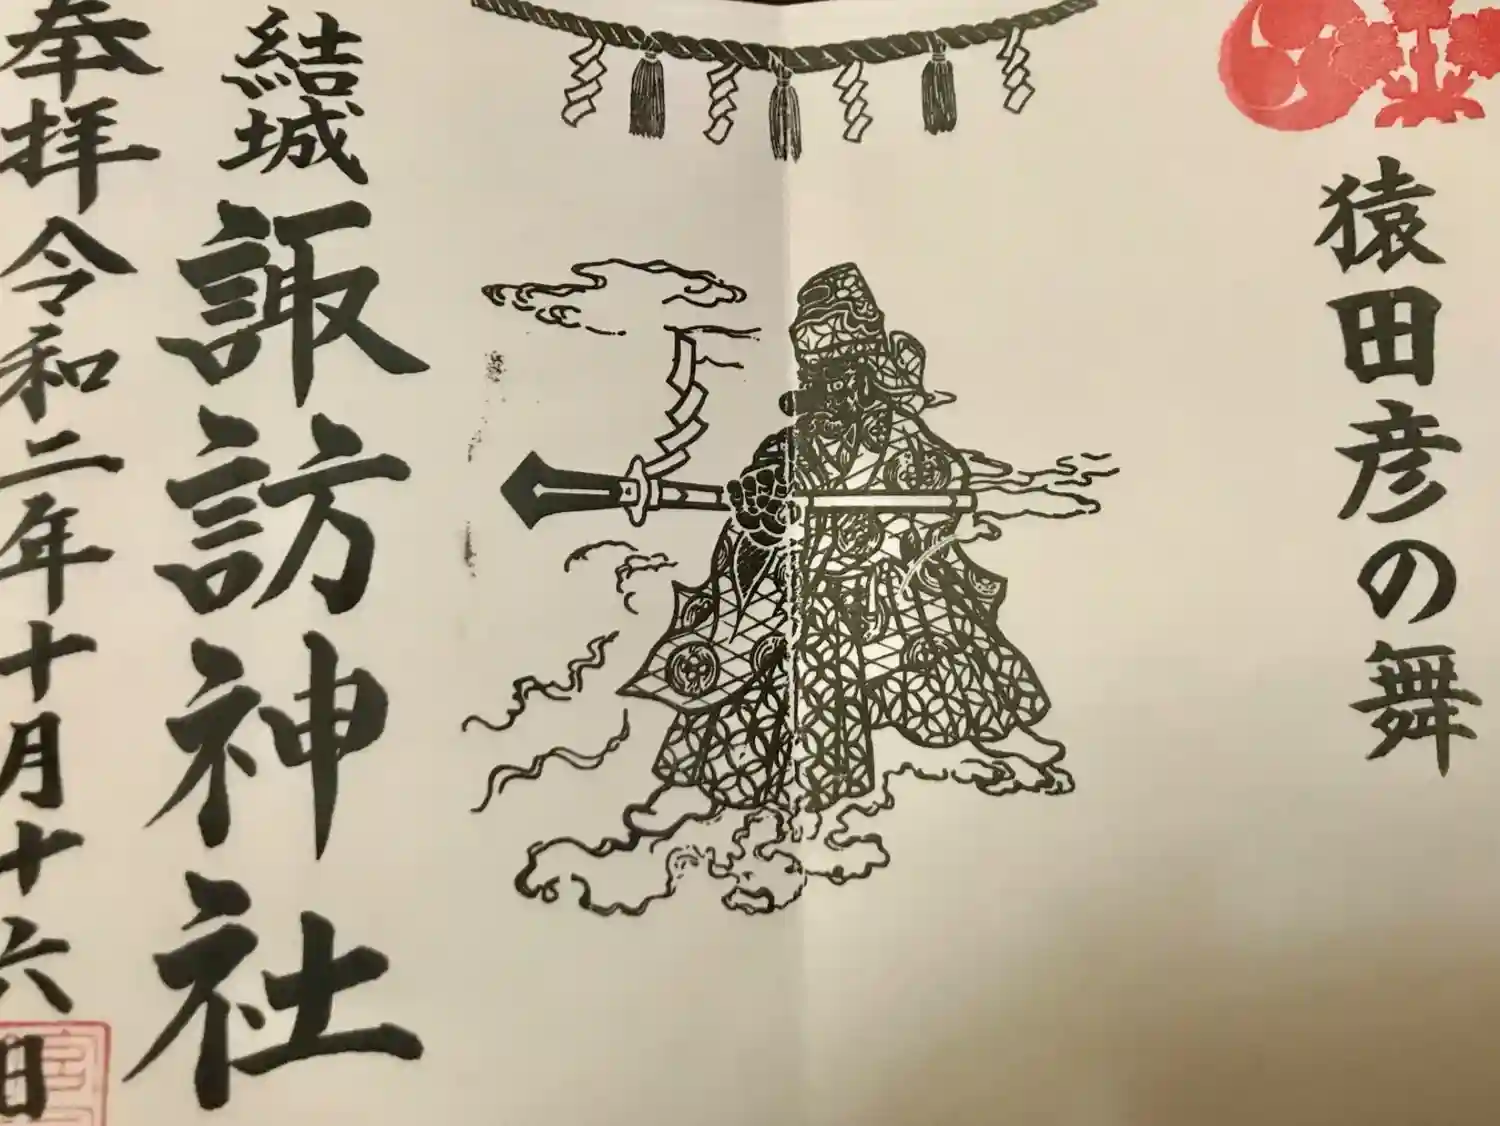 猿田彦の舞
結城
諏訪神社
奉拝令和二年十月十六日